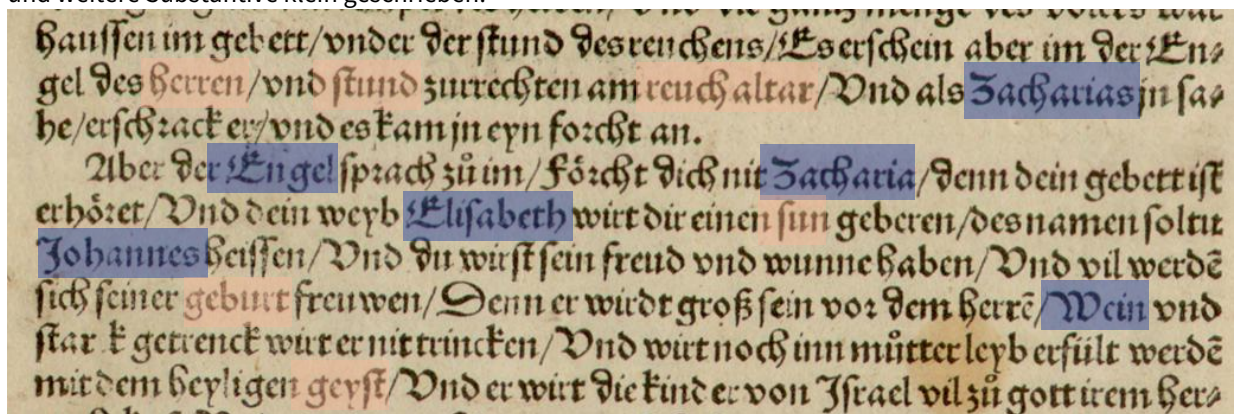 und weitere Substantive klein geschrieben.
haussen im gebett/vnder der stund des reuchens/Es erschein aber im der En⸗
gel des herren/vnd stund zur rechten am reuch altar/Vnd als Zacharias jn sa⸗
he/erschrack er/vnd es kam jn eyn forcht an.
Aber der Engel sprach zů im/Förcht dich nit Zacharia/denn dein gebett ist
erhöret/Vnd dein weyb Elisabeth wirt dir einen sun geberen/des namen soltu
Johannes heissen/Vnd du wirst sein freud vnd wunne haben/Vnd vil werdẽ
sich seiner geburt freuwen/Denn er wirdt groß sein vor dem herrẽ/Wein vnd
starck getrenck wirt er nit trincken/Vnd wirt noch inn můtter leyb erfült werdẽ
mit dem heyligen geyst/Vnd er wirt die kinder von Israel vil zů gott irem her⸗